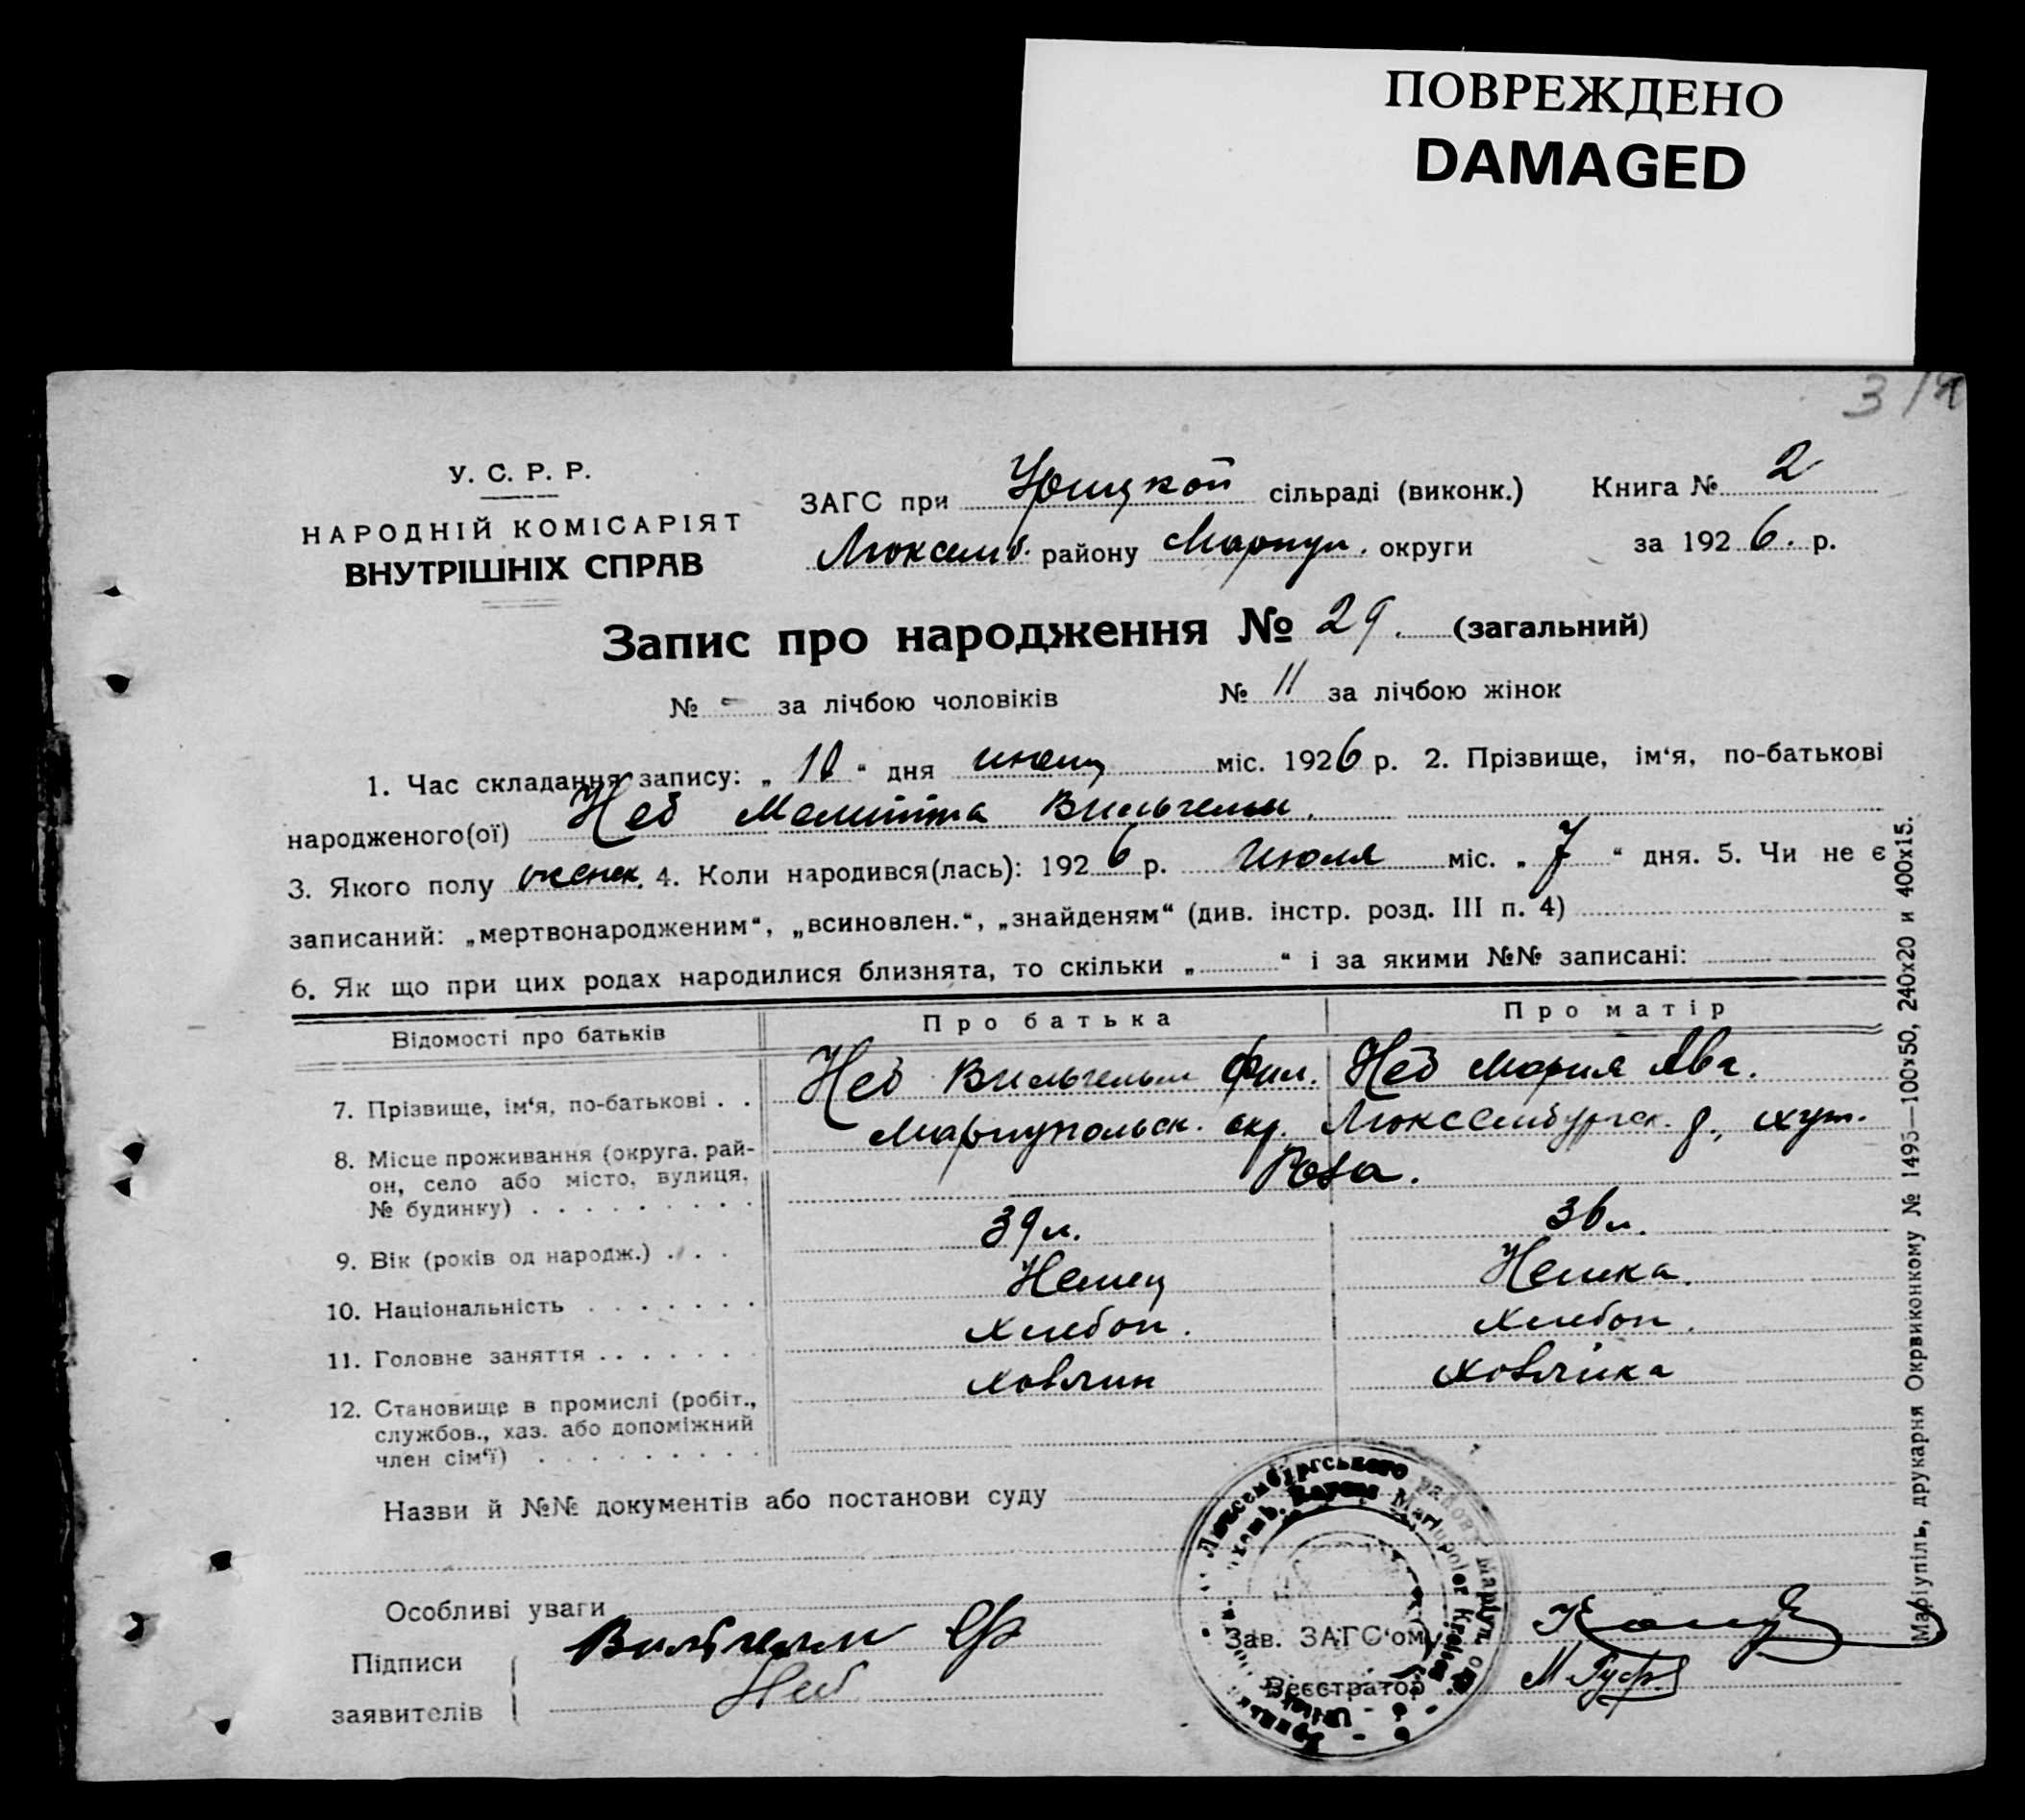 ПОВРЕЖДЕНО
DAMAGED
У. С. Р. Р.
НАРОДНІЙ КОМІСАРІЯТ
ВНУТРІШНІХ СПРАВ
ЗАГС при Урицкой сільраді (виконк.) Книга № 2
Люксемб. району Мариуп. округи за 1926. р.
Запис про народження № 29. (загальний)
№ - за лічбою чоловіків № 11 за лічбою жінок
1. Час складання запису: „ “ дня міс. 1926 р. 2. Прізвище, ім‘я, по-батькові
народженого(ої) Неб Мелитта Вильгельм.
3. Якого полу женск. 4. Коли народився(лась): 1926 р. Июля міс. „ 7 “ дня. 5. Чи не є
записаний: „мертвонародженим“, „всиновлен.“, „знайденям“ (див. інстр. розд. III п. 4)
6. Як що при цих родах народилися близнята, то скільки „ “ і за якими №№ записані:
Відомості про батьків Про батька Про матір
7. Прізвище, ім‘я, по-батькові . . Неб Вильгельм Фил. Неб Мария
8. Місце проживання (округа, рай- Мариупольск. окр. Люксембургск. р., хут.
он, село або місто, вулиця, Роза.
№ будинку) . . . . . . . . .
9. Вік (років од народж.) . . . 39 л. 36 л.
10. Національність . . . . . . . Немец Немка.
11. Головне заняття . . . . . . . Хлебоп. Хлебоп.
12. Становище в промислі (робіт.,
службов., хаз. або допоміжний
член сім‘ї) . . . . . . . . .
Назви й №№ документів або постанови суду
Особливі уваги
Підписи Вильгельм Зав. ЗАГС‘ому
заявителів Неб Реєстратор
Маріупіль, друкарня Окрвиконкому № 1495—100х50, 240х20 и 400х15.
Люксембіргського району Маріуп. окр.
Rayons Mariupoler Kreises